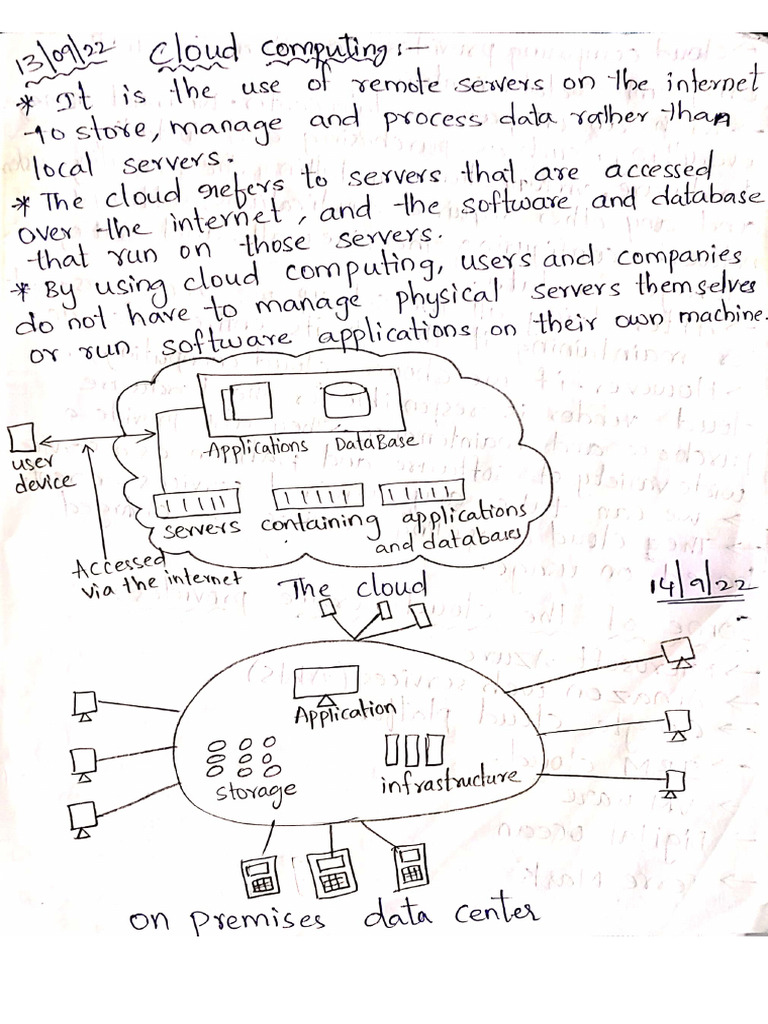 13/09/22 Cloud computing:-
* It is the use of remote servers on the internet
to store, manage and process data rather than
local servers.
* The cloud refers to servers that are accessed
over the internet, and the software and database
that run on those servers.
* By using cloud computing, users and companies
do not have to manage physical servers themselves
or run software applications on their own machine.
Applications DataBase
user
device
servers containing applications
and databases
Accessed
via the internet
The cloud
14/9/22
Application
storage
infrastructure
on premises data center